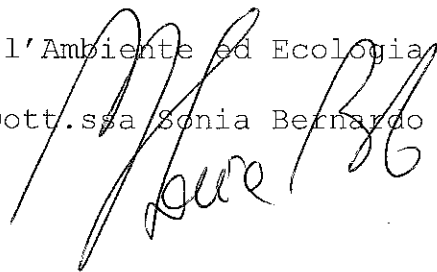 l'Ambiente ed Ecologia
ott.ssa Sonia Bernardo